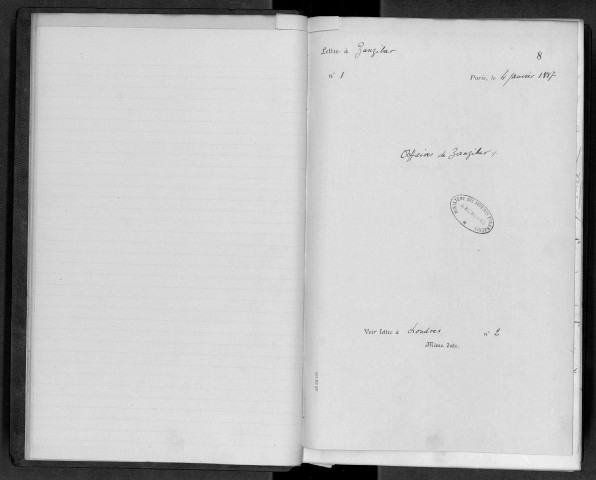 8
Lettre à Zanzibar
n° 1 Paris, le janvier 1887
Affaires de Zanzibar.
MINISTÈRE DES AFFAIRES ÉTRANGÈRES
Voir lettre à Londres n° 2
Même date.